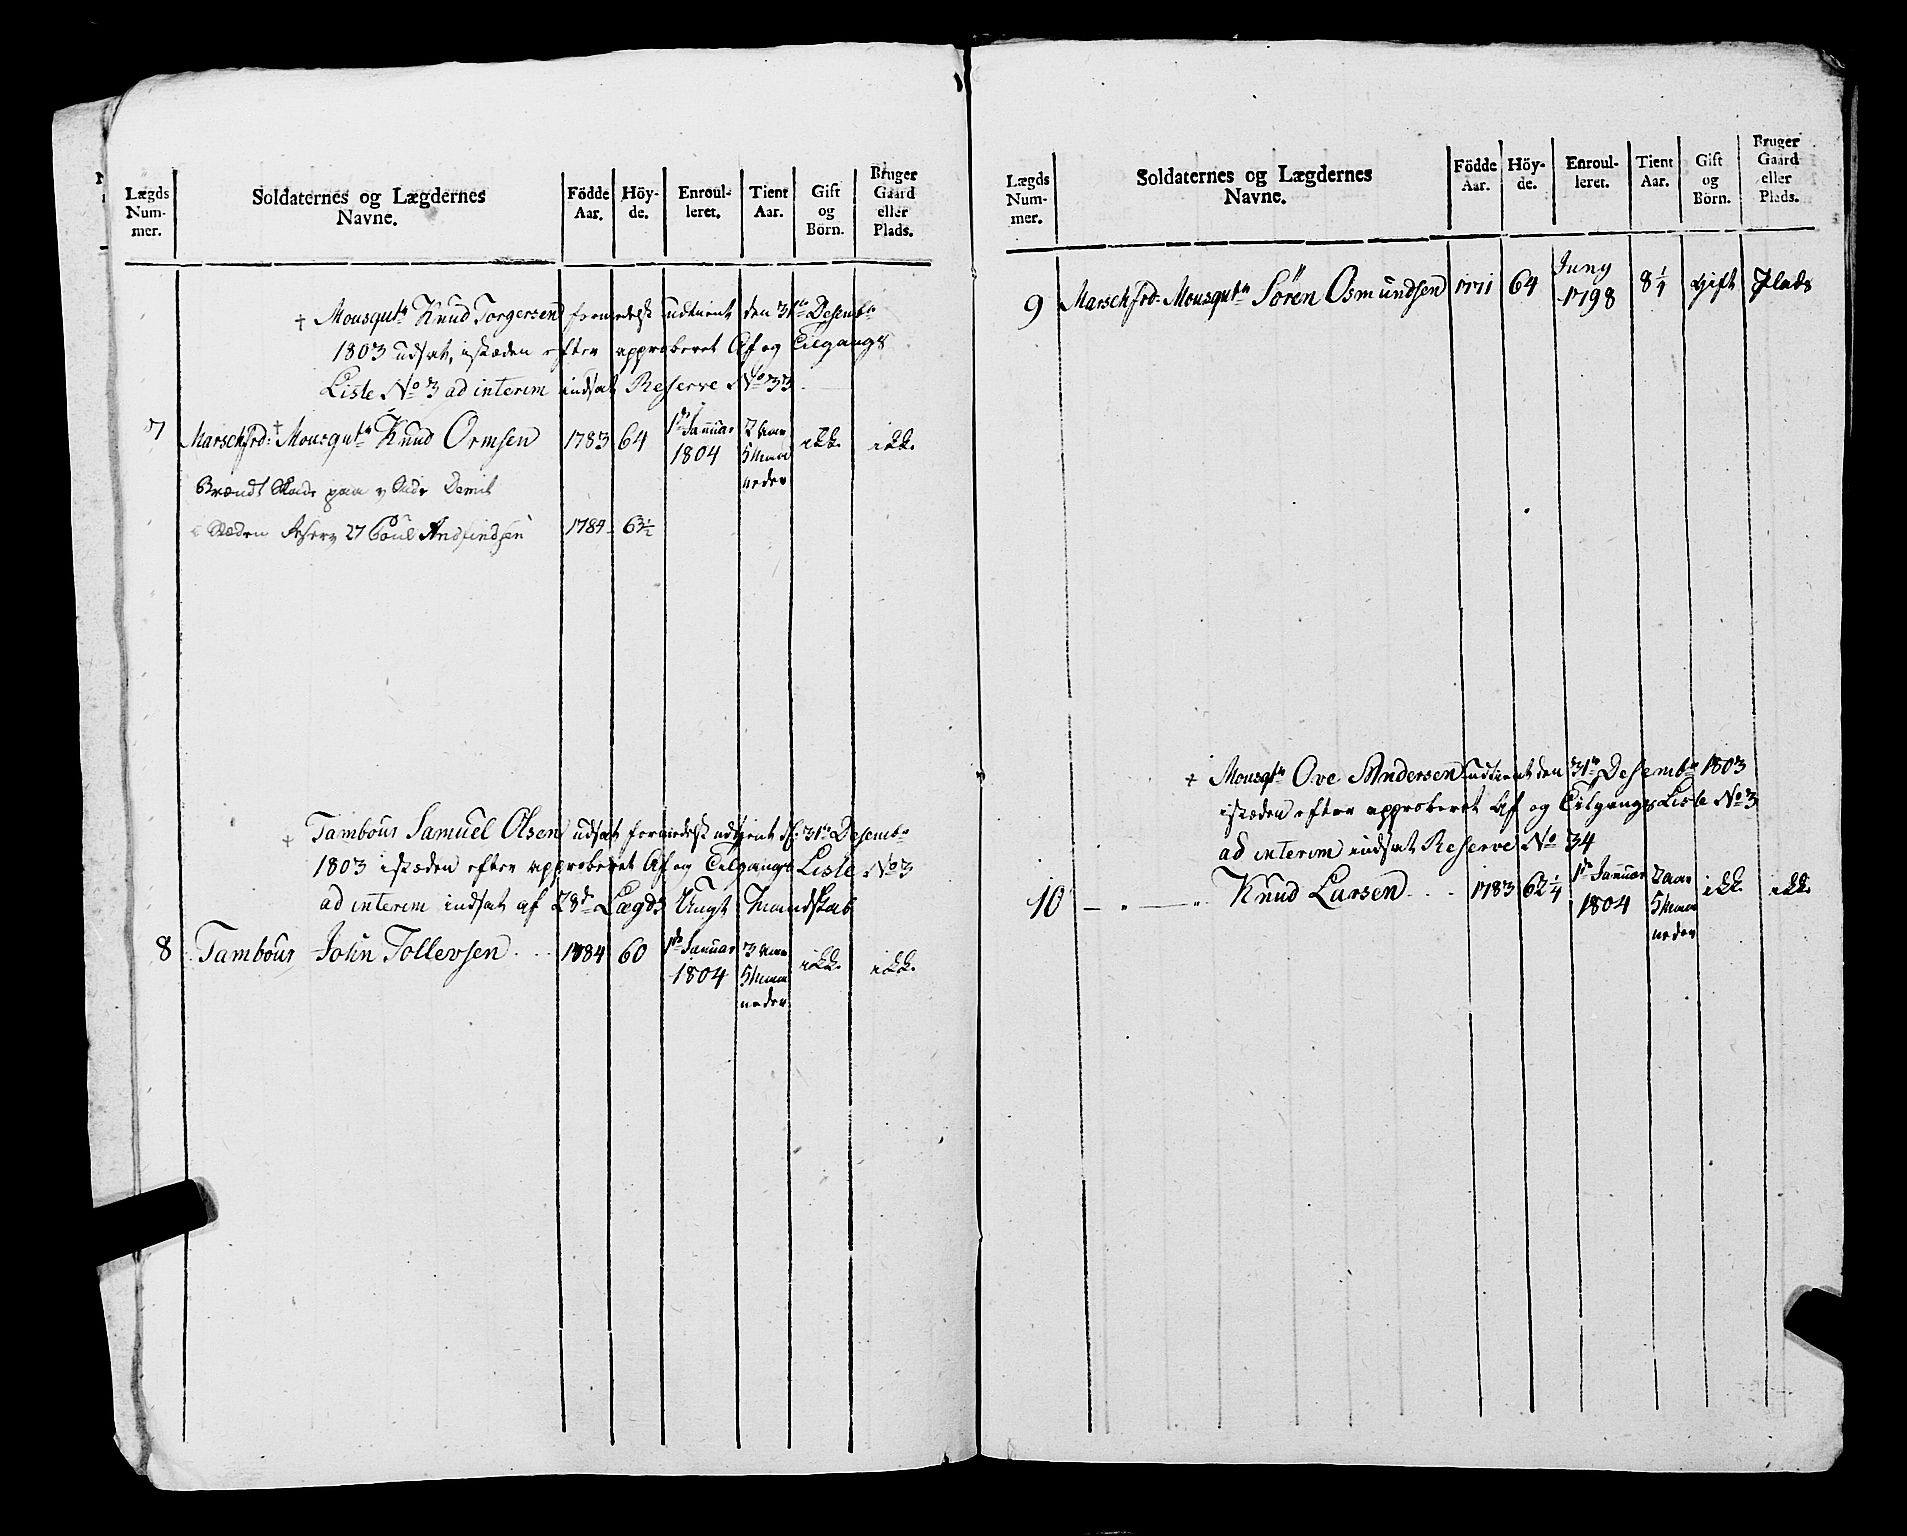 Lægds Num-mer. Soldaternes og Lægdernes Navne. Födde Aar. Höy-de. Enroul-leret. Tient Aar. Gift og Börn. Bruger Gaard eller Plads.
† Mousqutr Knud Torgersen formedelst udtient den 31te Desembr
1803 udsat, istæden efter approberet Af og Tilgangs
Liste No 3 ad interim indsat Reserve No 33
7 Marschfrd: † Mousqutr Knud Ormsen 1783 64 1te Januar 1804 2 Aar 5 Maaneder ikke ikke
Brændt Skade paa Demit
Stæden Reserv 27 Poul Andfindsen 1784 63½
† Tambour Samuel Olsen udsat formedelst udtient d: 31te Desembr
1803 istæden efter approberet Af og Tilgangs Liste No 3
ad interim indsat af 28de Lægds Ungt Mandskab
8 Tambour John Tollevsen 1784 60 1te Januar 1804 3 Aar 5 Maaneder ikke ikke
Lægds Num-mer. Soldaternes og Lægdernes Navne. Födde Aar. Höy-de. Enroul-leret. Tient Aar. Gift og Börn. Bruger Gaard eller Plads.
9 Marschfrd: Mousqutr Sören Osmundsen 1771 64 Juny 1798 8¼ Gift Plads
† Mousqtr Ove Andersen udtient den 31te Desembr 1803
istæden efter approberet Af og Tilgangs Liste No 3
ad interim indsat Reserve No 34
10 — " — " Knud Larsen 1783 62¼ 1te Januar 1804 2 Aar 5 Maaneder ikke ikke